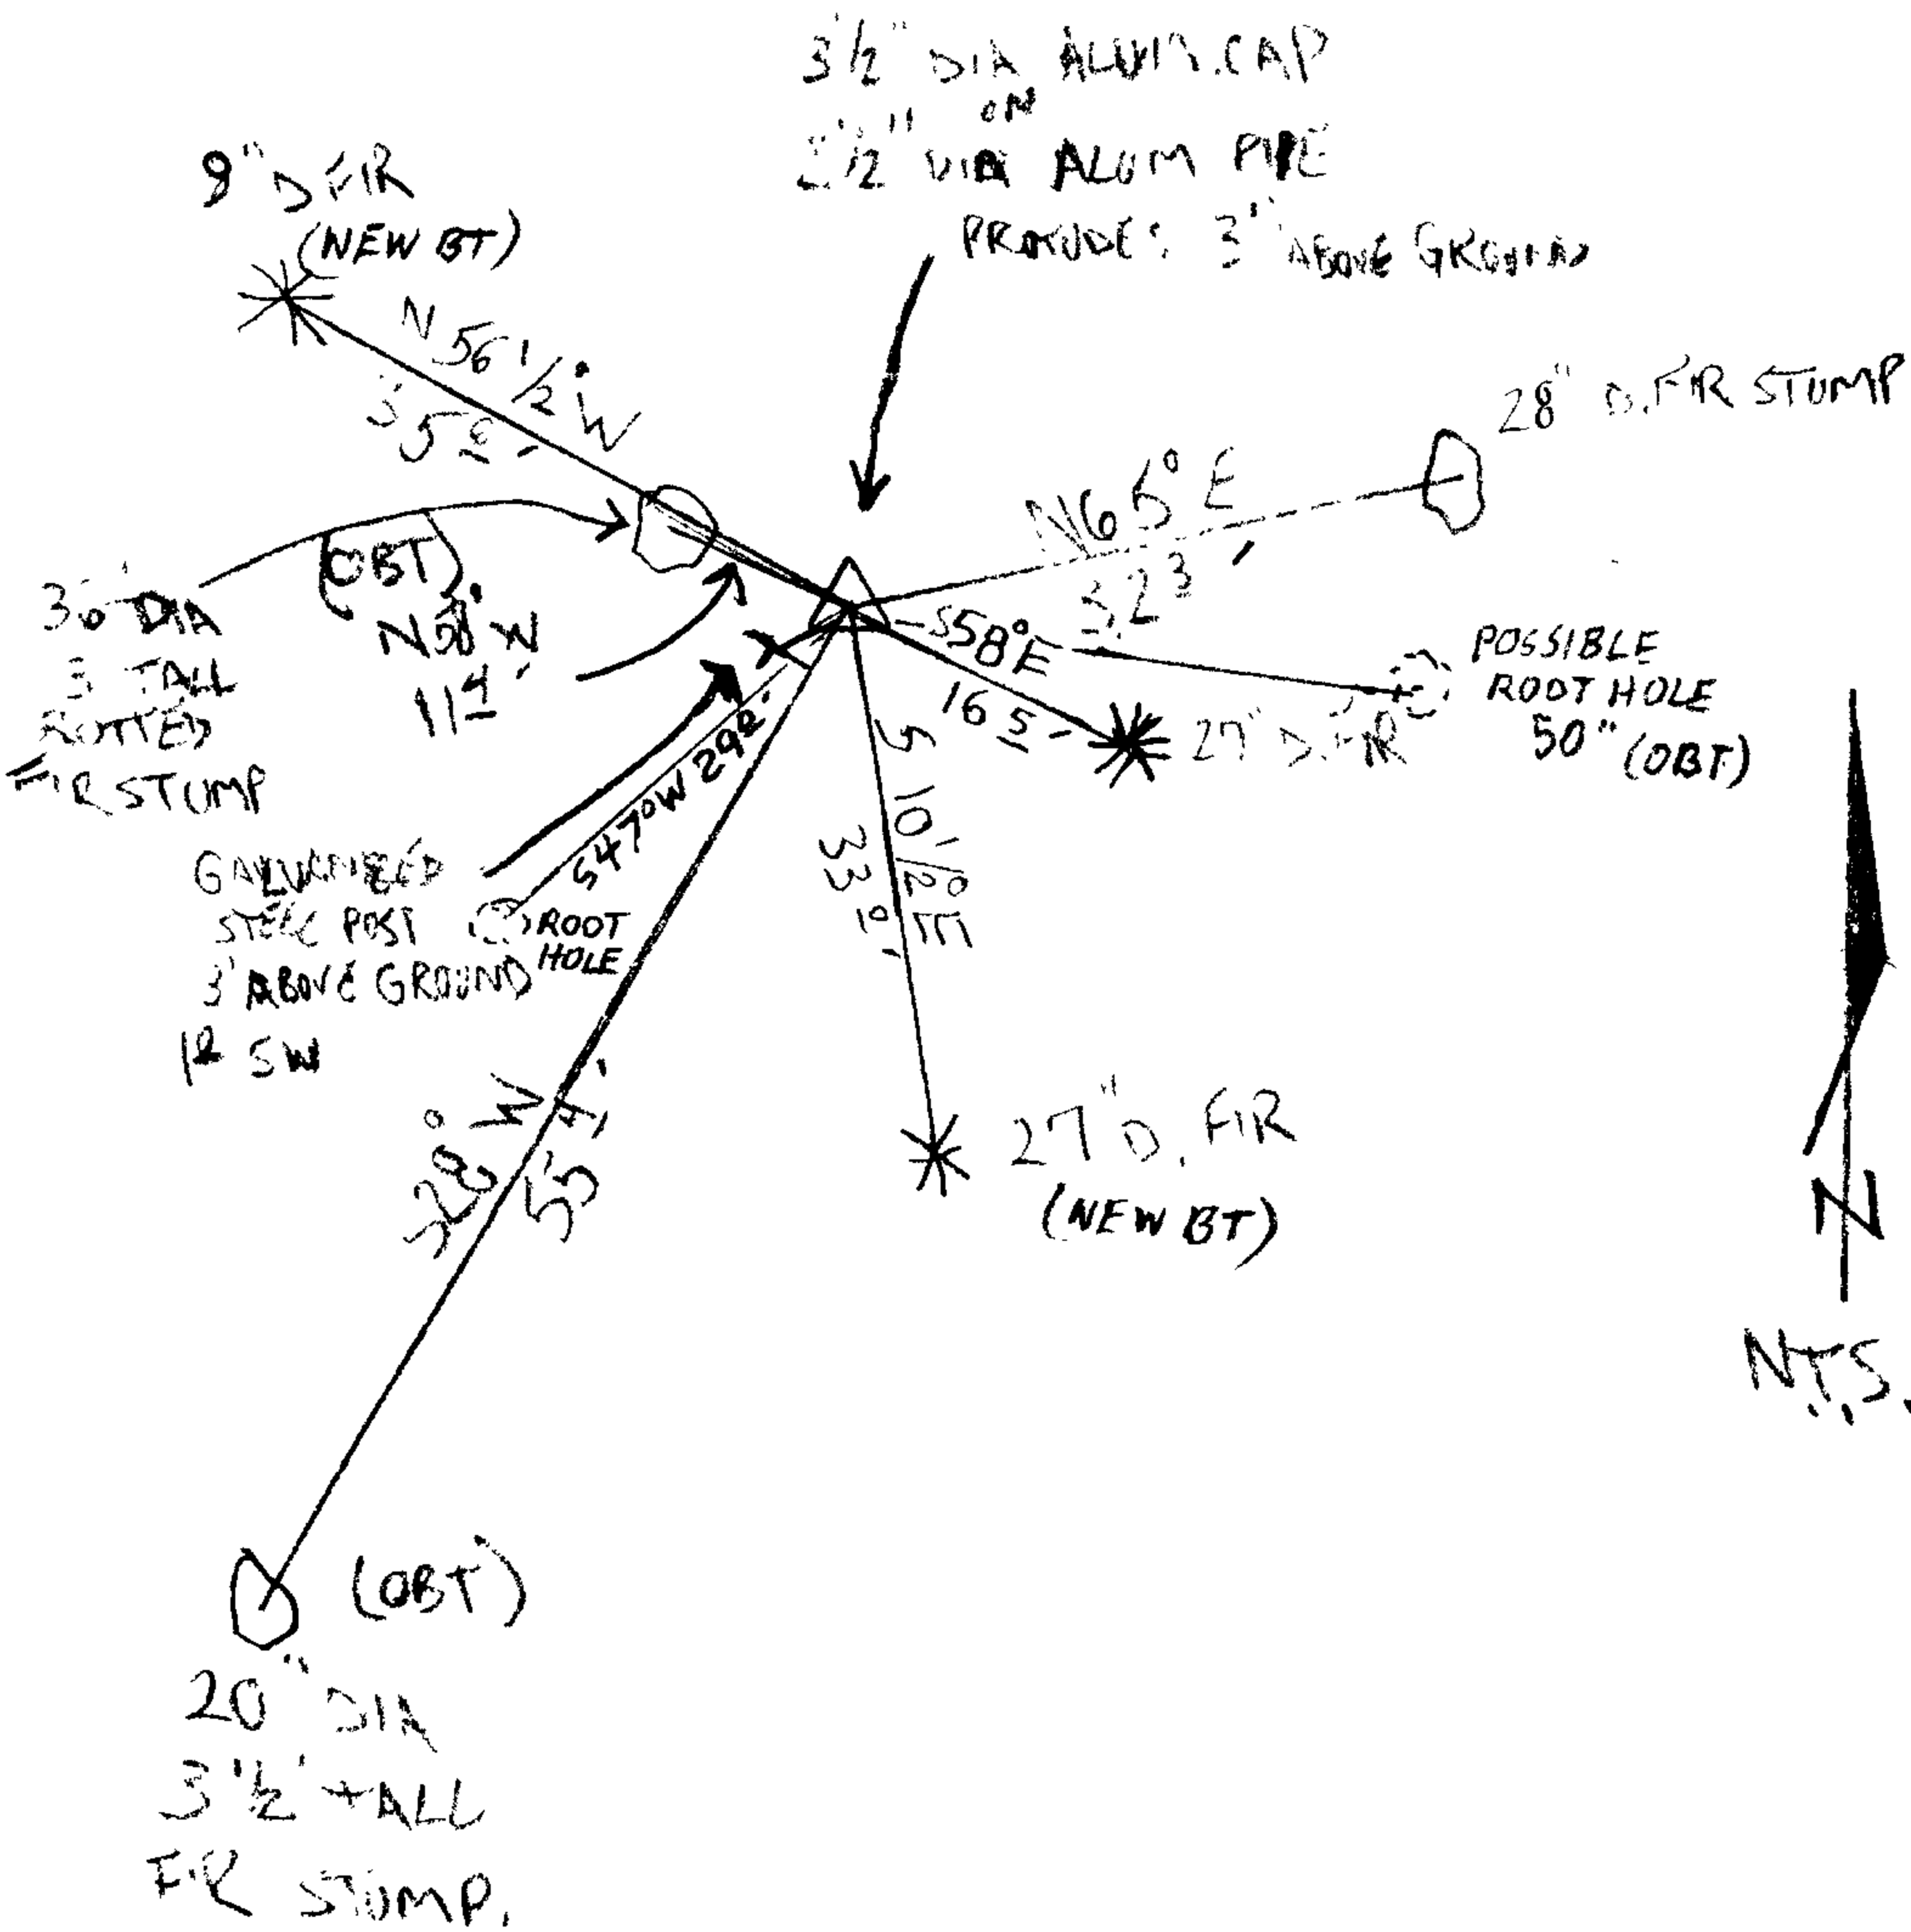 3½" DIA ALUM. CAP
ON
2½" DIA ALUM PIPE
PROTRUDES 3" ABOVE GROUND
D FIR
(NEW BT)
N 56 1/2° W
28" D. FIR STUMP
N 65° E
32 3'
(OBT)
30" DIA
3' TALL
ROTTED
FIR STUMP
W
11 4'
S 58° E
16 5'
27" D. FIR
POSSIBLE
ROOT HOLE
50" (OBT)
S 47° W 29 2'
GALVANIZED
STEEL POST
3' ABOVE GROUND
SW
ROOT
HOLE
S 10 1/2° E
33
27" D. FIR
(NEW BT)
S 28° W
N
N.T.S.
(OBT)
20" DIA
3½' TALL
FIR STUMP.